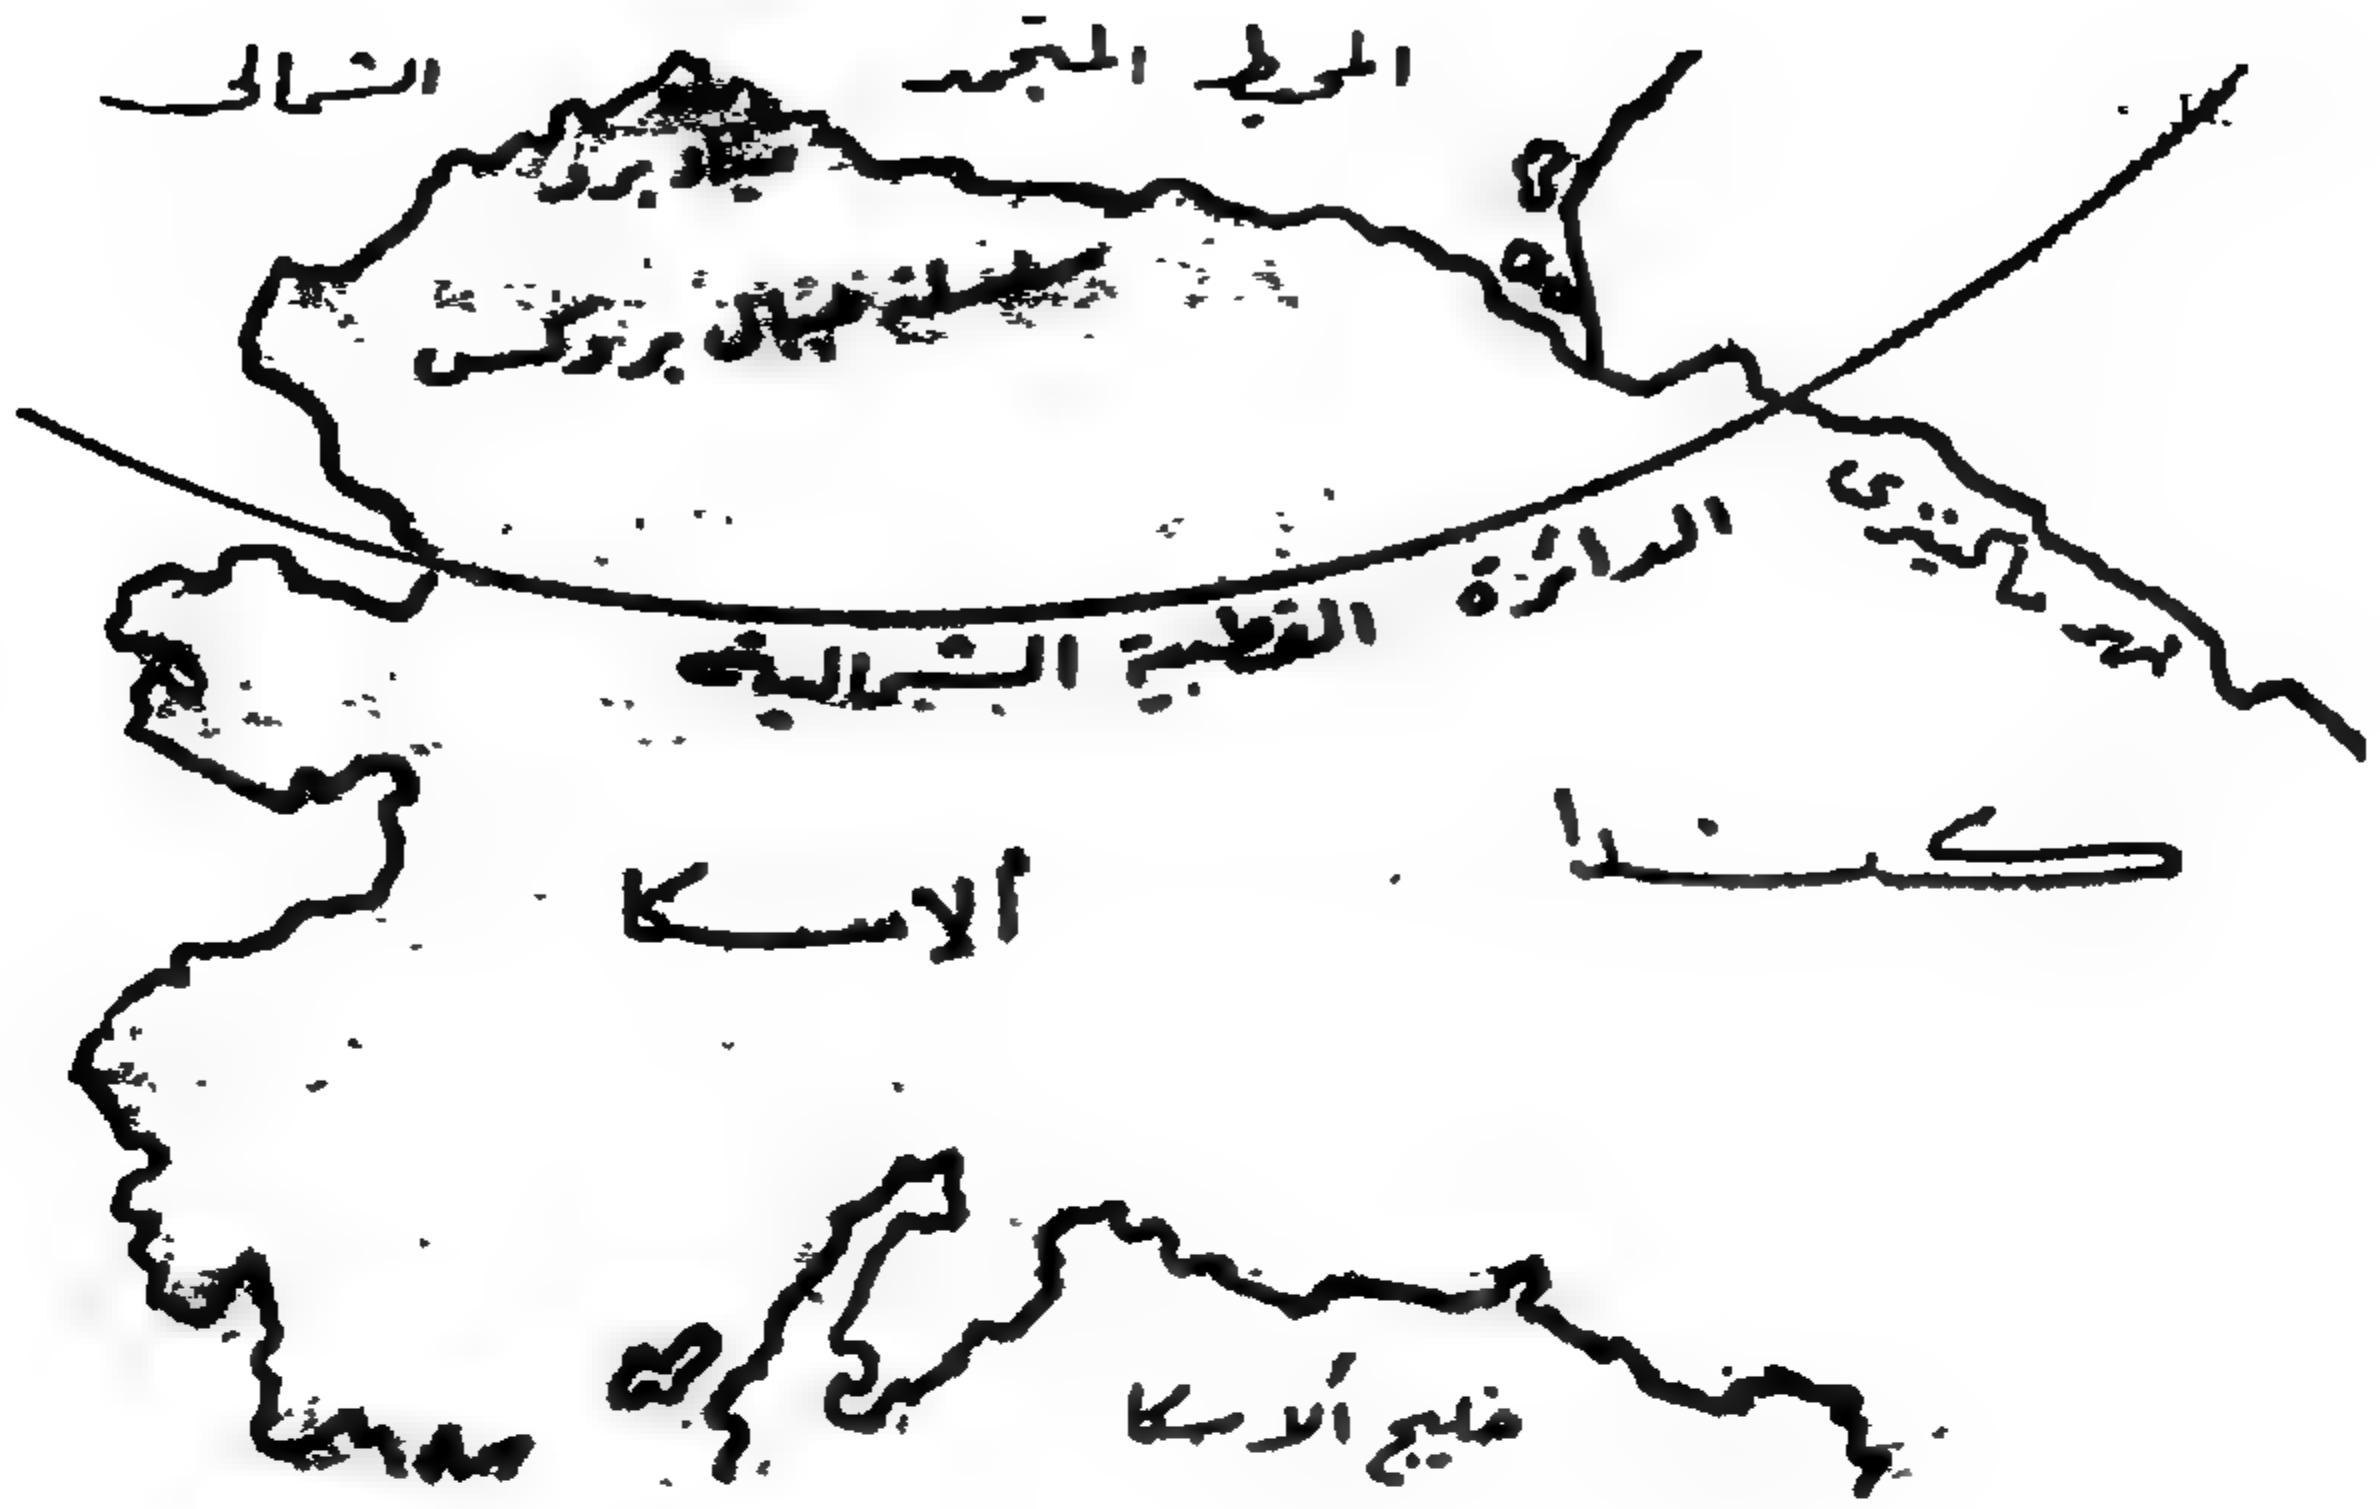 المحيط المتجمد الشمالى
سلسلة جبال بروكس
نهر ماكنزى
الدائرة القطبية الشمالية
كندا
ألاسكا
خليج ألاسكا